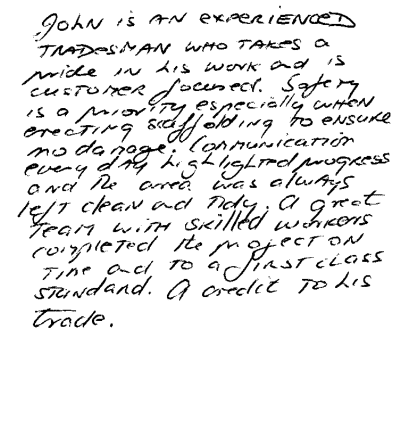 John is an experienced
tradesman who takes a
pride in his work and is
customer focused. Safety
is a priority especially when
erecting scaffolding to ensure
no damage. Communication
every day highlighted progress
and the area was always
left clean and tidy. A great
team with skilled workers
completed the project on
time and to a first class
standard. A credit to his
trade.